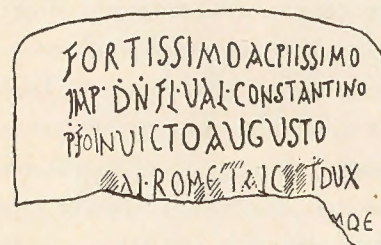 FORTISSIMO AC PIISSIMO
IMP· DN FL· VAL· CONSTANTINO
P F O INVICTO AUGUSTO
AL· ROMETALC DUX
MQE